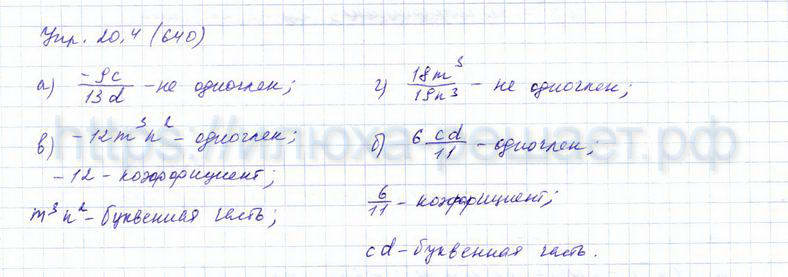 Упр. 20.4 (640)
а) -9c/13d - не одночлен;
в) -12m³n² - одночлен;
-12 - коэффициент;
m³n² - буквенная часть;
г) 18m³/19n³ - не одночлен;
б) 6 cd/11 - одночлен;
6/11 - коэффициент;
cd - буквенная часть.